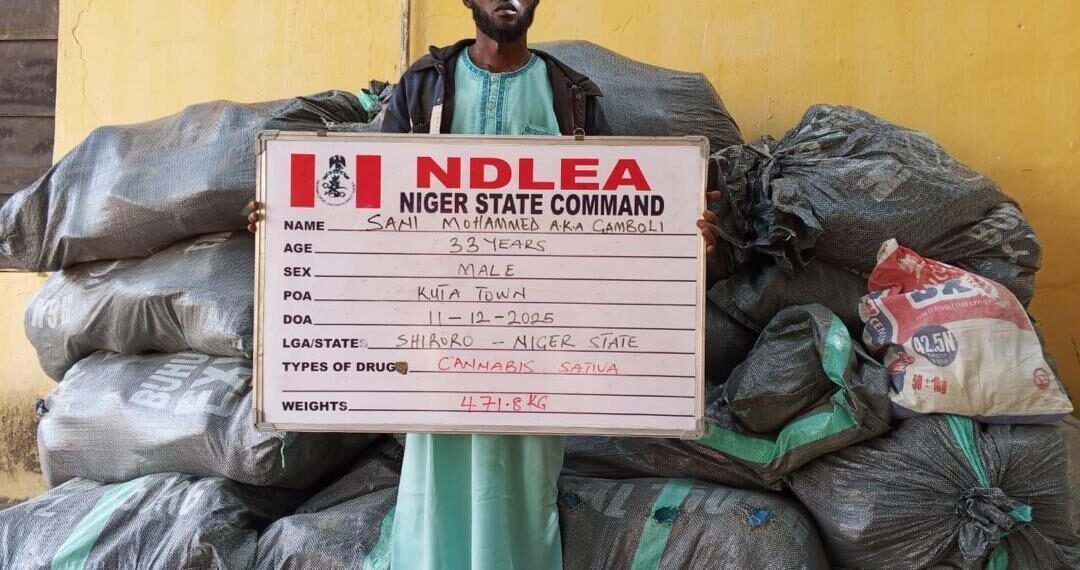 NDLEA
NIGER STATE COMMAND
NAME SANI MOHAMMED A.K.A GAMBOLI
AGE 33 YEARS
SEX MALE
POA KUTA TOWN
DOA 11-12-2025
LGA/STATE SHIRORO -- NIGER STATE
TYPES OF DRUG CANNABIS SATIVA
WEIGHTS 471.8KG
BUHU
EX
42.5N
50±1kg